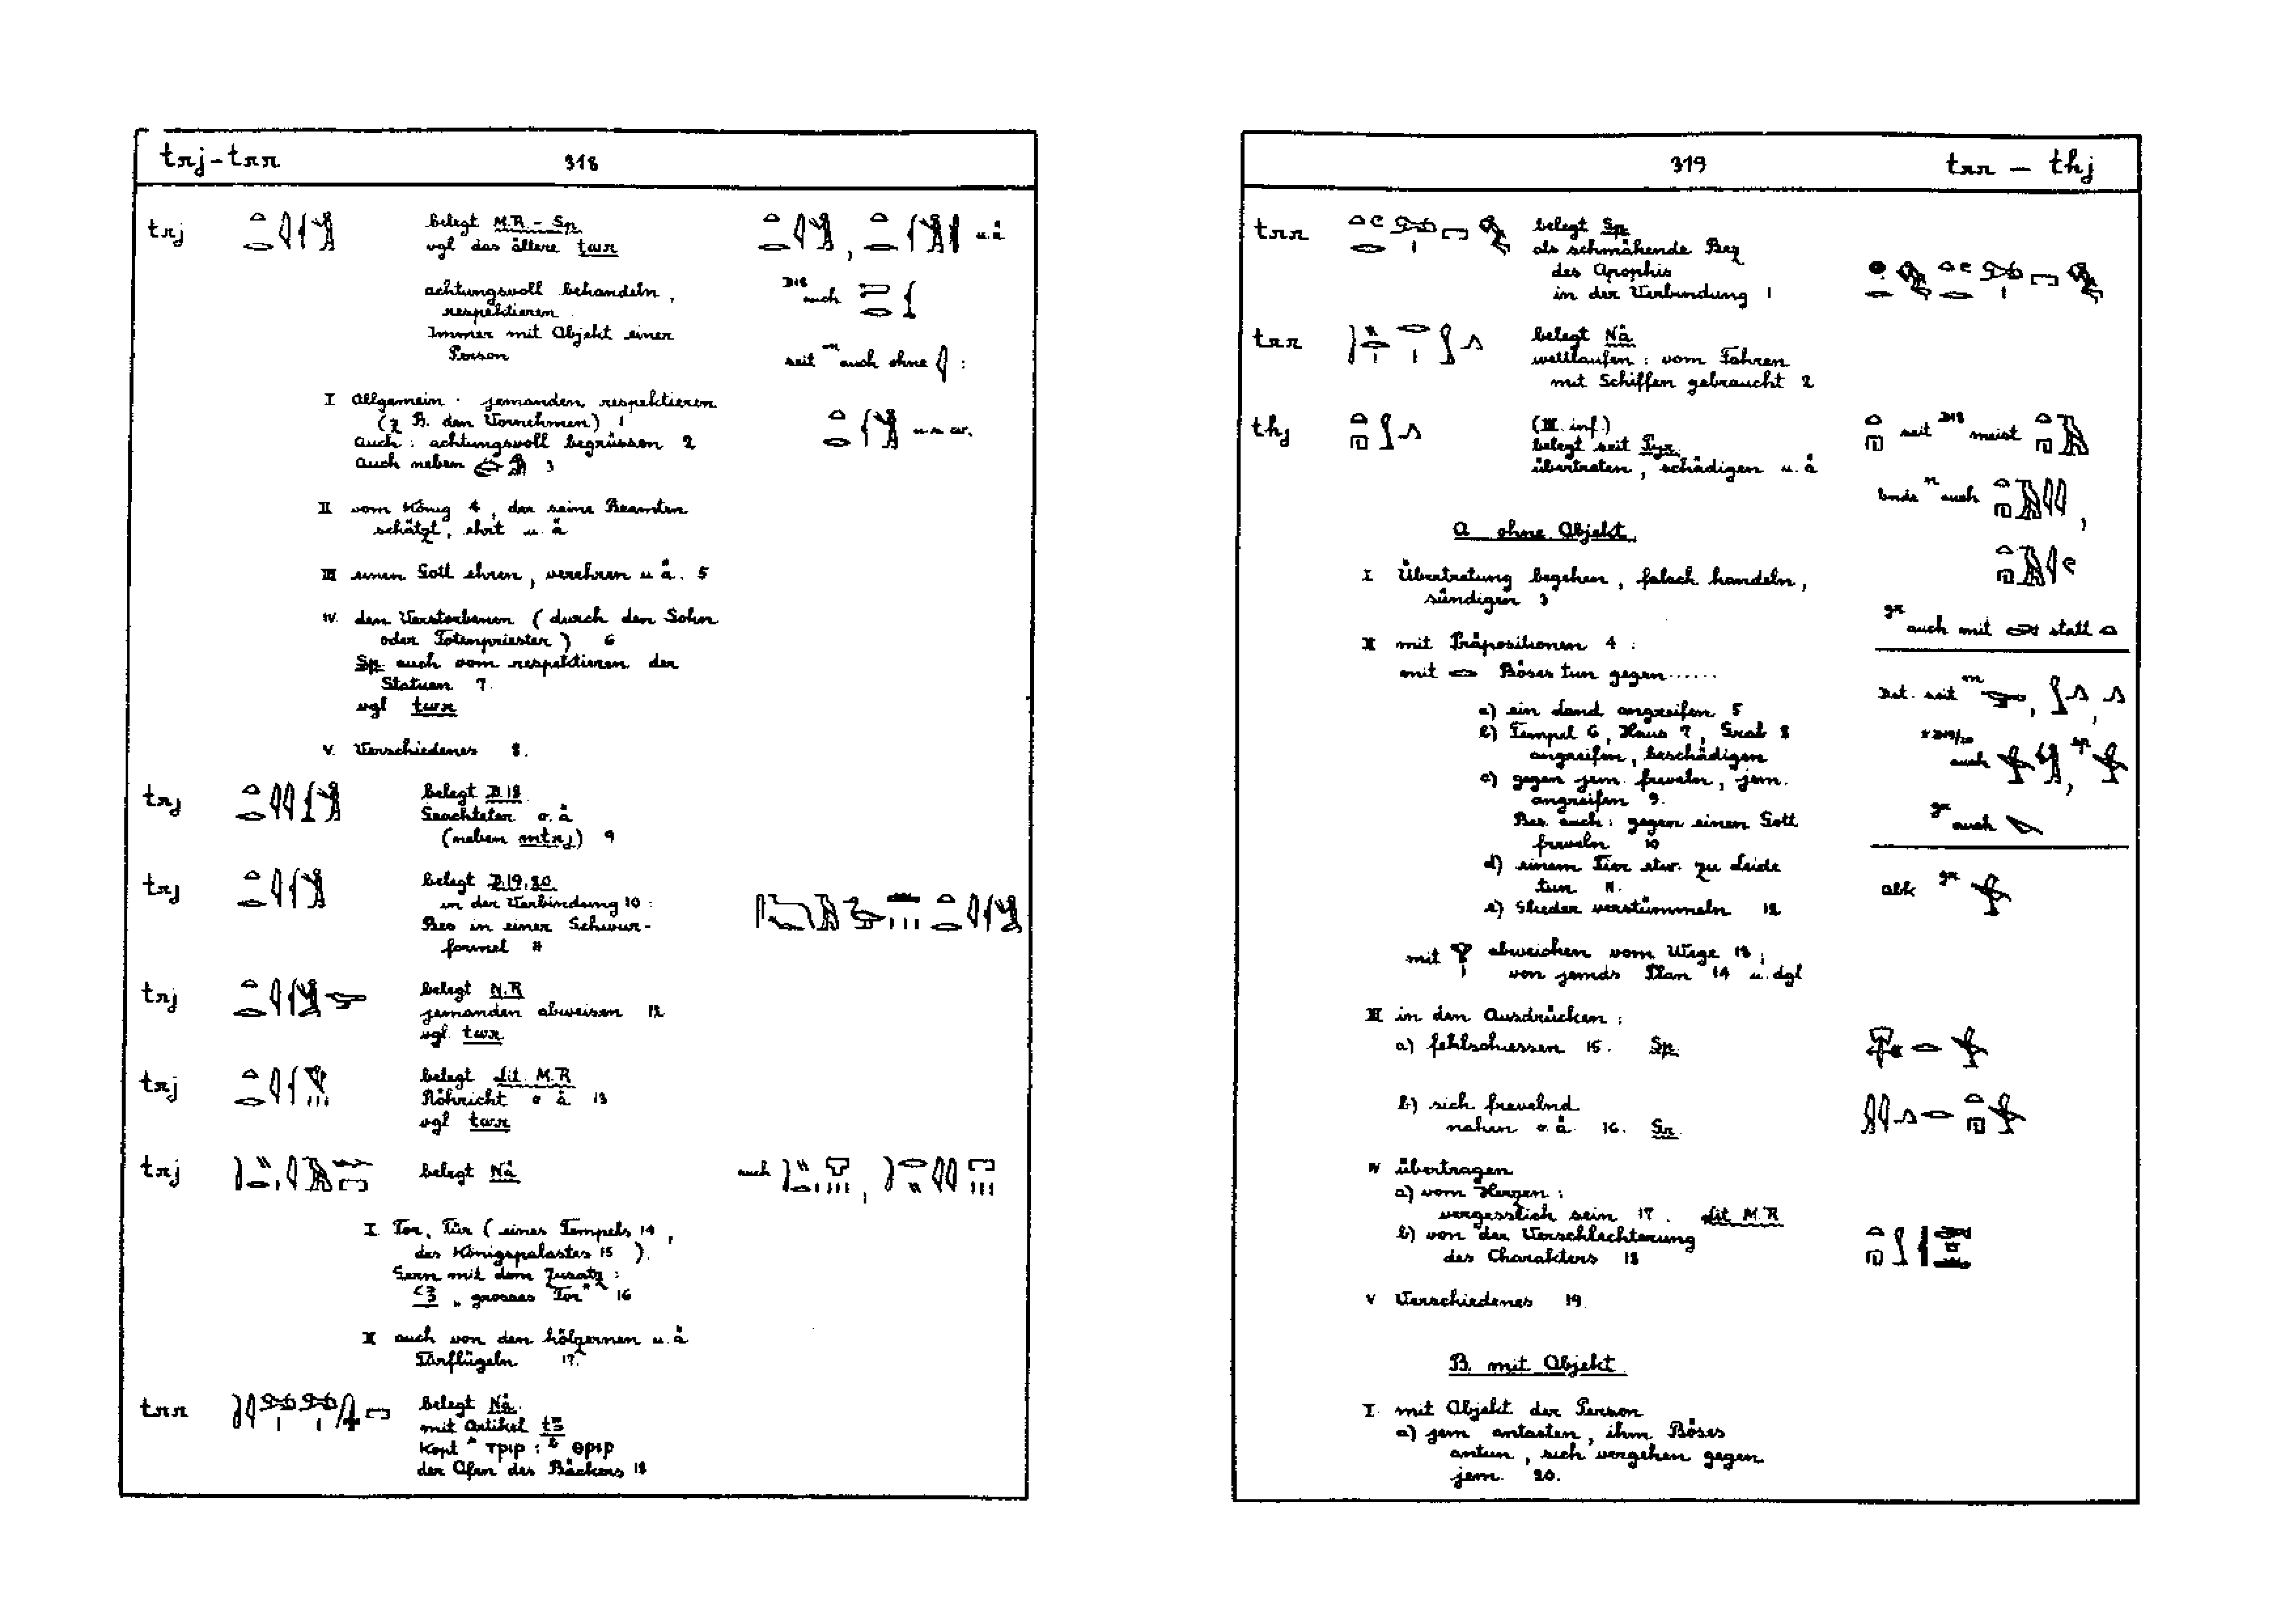 trj-trr 318
trj belegt M.R - Sp.
vgl das ältere twr
u.ä
achtungsvoll behandeln,
respektieren.
Immer mit Objekt einer
Person
D18 auch
seit auch ohne :
I Allgemein · jemanden respektieren
(z B. den Vornehmen) 1
auch: achtungsvoll begrüssen 2
auch neben 3
u.s.w.
II vom König 4, der seine Beamten
schätzt, ehrt u. ä
III einen Gott ehren, verehren u ä. 5
IV. den Verstorbenen (durch den Sohn
oder Totenpriester) 6
Sp. auch vom respektieren der
Statuen 7.
vgl twr
V. Verschiedenes 8.
trj belegt D.18.
Geachteter o.ä
(neben mtrj) 9
trj belegt D.19.20.
in der Verbindung 10:
Bes in einer Schwur-
formel 11
trj belegt N.R
jemanden abweisen 12
vgl. twr
trj belegt Lit. M.R
Röhricht o ä 13
vgl twr
trj belegt Nä
auch ,
I Tor, Tür (eines Tempels 14,
des Königspalastes 15 ).
Gern mit dem Zusatz:
ꜥꜣ „grosses Tor" 16
II auch von den hölzernen u.ä
Türflügeln 17.
trr belegt Nä.
mit Artikel tꜣ
Kopt ᴬ ⲧⲣⲓⲣ : ᴮ ⲑⲣⲓⲣ
der Ofen des Bäckers 18
319 trr - thj
trr belegt Sp.
als schmähende Bez
des Apophis
in der Verbindung 1
trr belegt Nä.
wettlaufen: vom Fahren
mit Schiffen gebraucht 2
thj (III. inf.)
belegt seit Pyr.
übertreten, schädigen u. ä
seit D18 meist
Ende auch ,
gr auch mit statt
Det. seit
auch , Sp.
gr auch
abk gr
A ohne Objekt.
I Übertretung begehen, falsch handeln,
sündigen 3
II mit Präpositionen 4:
mit Böses tun gegen......
a) ein Land angreifen 5
b) Tempel 6, Haus 7, Grab 8
angreifen, beschädigen
c) gegen jem. freveln, jem.
angreifen 9.
Bes. auch: gegen einen Gott
freveln 10
d) einem Tier etw. zu Leide
tun 11.
e) Glieder verstümmeln 12
mit abweichen vom Wege 13;
von jemds Plan 14 u. dgl
III in den Ausdrücken:
a) fehlschiessen 15. Sp.
b) sich frevelnd
nahen o.ä. 16. Gr.
IV übertragen
a) vom Herzen:
vergesslich sein 17. Lit M.R
b) von der Verschlechterung
des Charakters 18
V Verschiedenes 19.
B. mit Objekt
I. mit Objekt der Person
a) jem antasten, ihm Böses
antun, sich vergehen gegen
jem. 20.